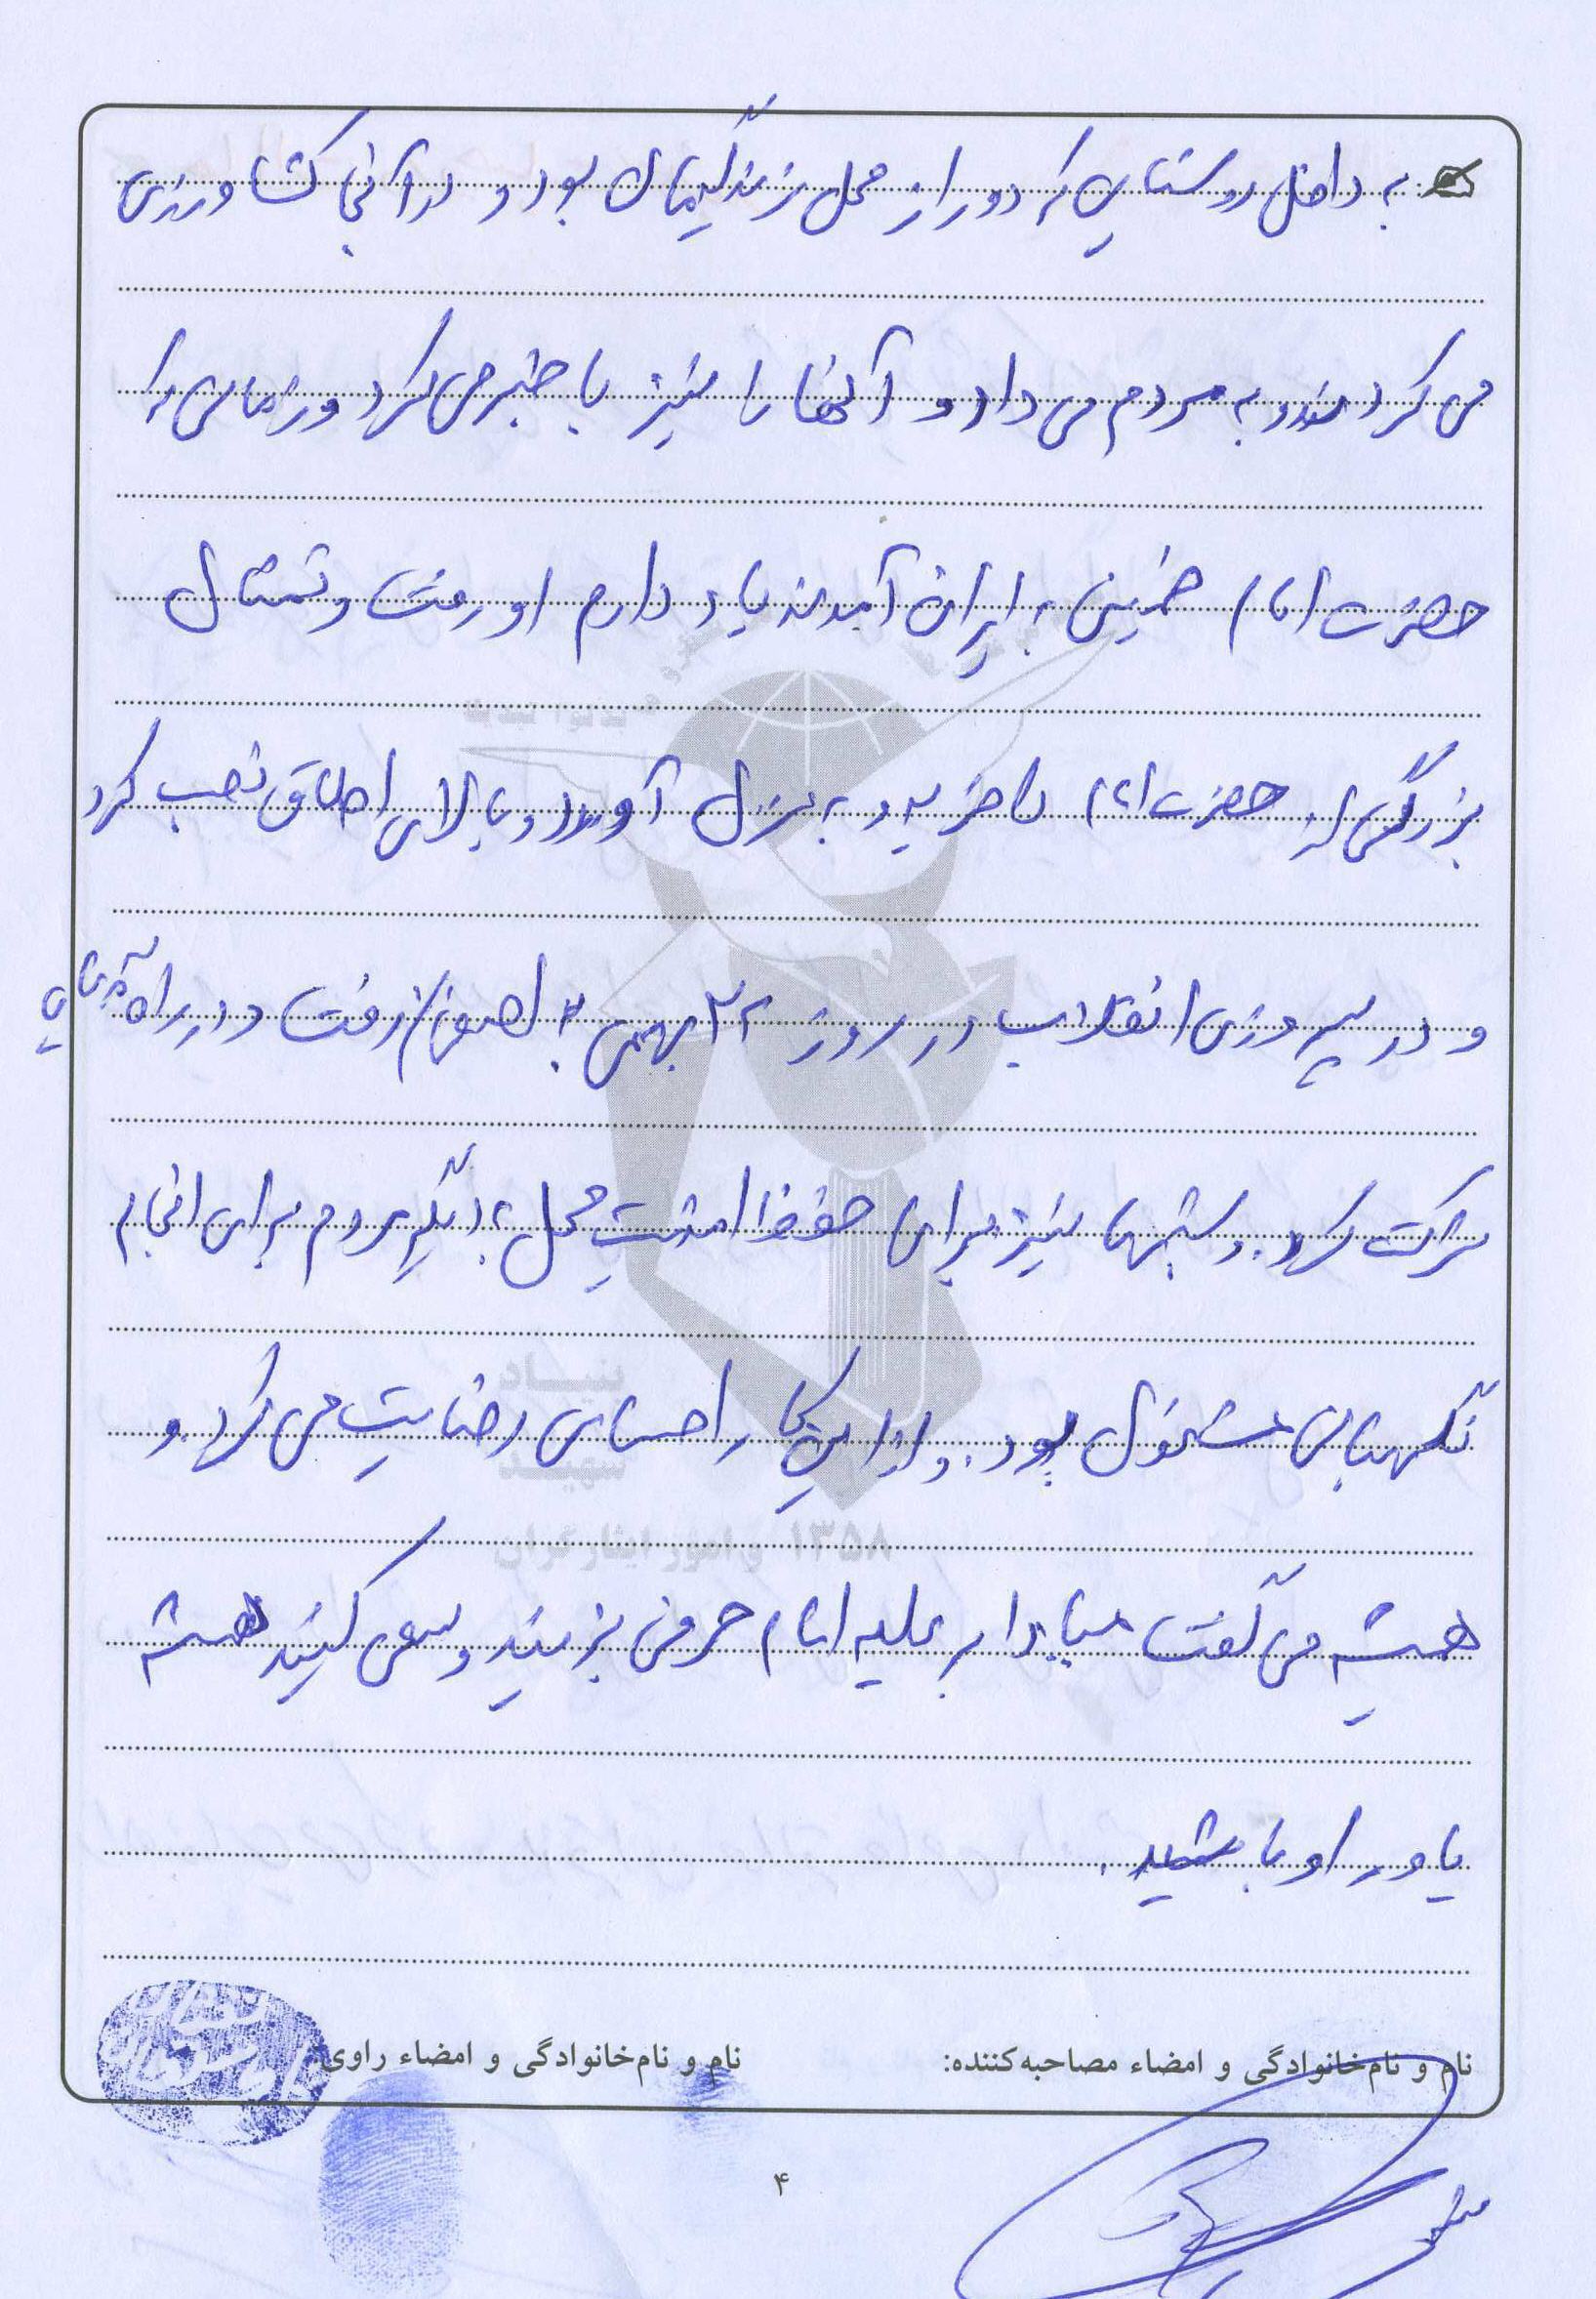 به داخل روستایی که دور از محل زندگیمان بود و در آنجا کشاورزی
می کردند و به مردم می داد و آنها را نیز با خبر می کرد و زمانی که
حضرت امام خمینی به ایران آمدند یاد دارم او رفت و تمثال
بزرگی از حضرت امام را خرید و به منزل آورد و بالای اطاق نصب کرد
و در پیروزی انقلاب در روز ۲۲ بهمن به رفت و در راهپیمایی
شرکت کرد. و شبها نیز برای حفظ امنیت محل با دیگر مردم برای انجام
نگهبانی مشغول بود. و از این کار احساس رضایت می کرد. و
همیشه می گفت مبادا بر علیه امام حرفی بزنید و سعی کنید همیشه
یاور او باشید.
بنیاد
شهید
و امور ایثارگران ۱۳۵۸
نام و نام‌خانوادگی و امضاء مصاحبه‌کننده: نام و نام‌خانوادگی و امضاء راوی:
۴